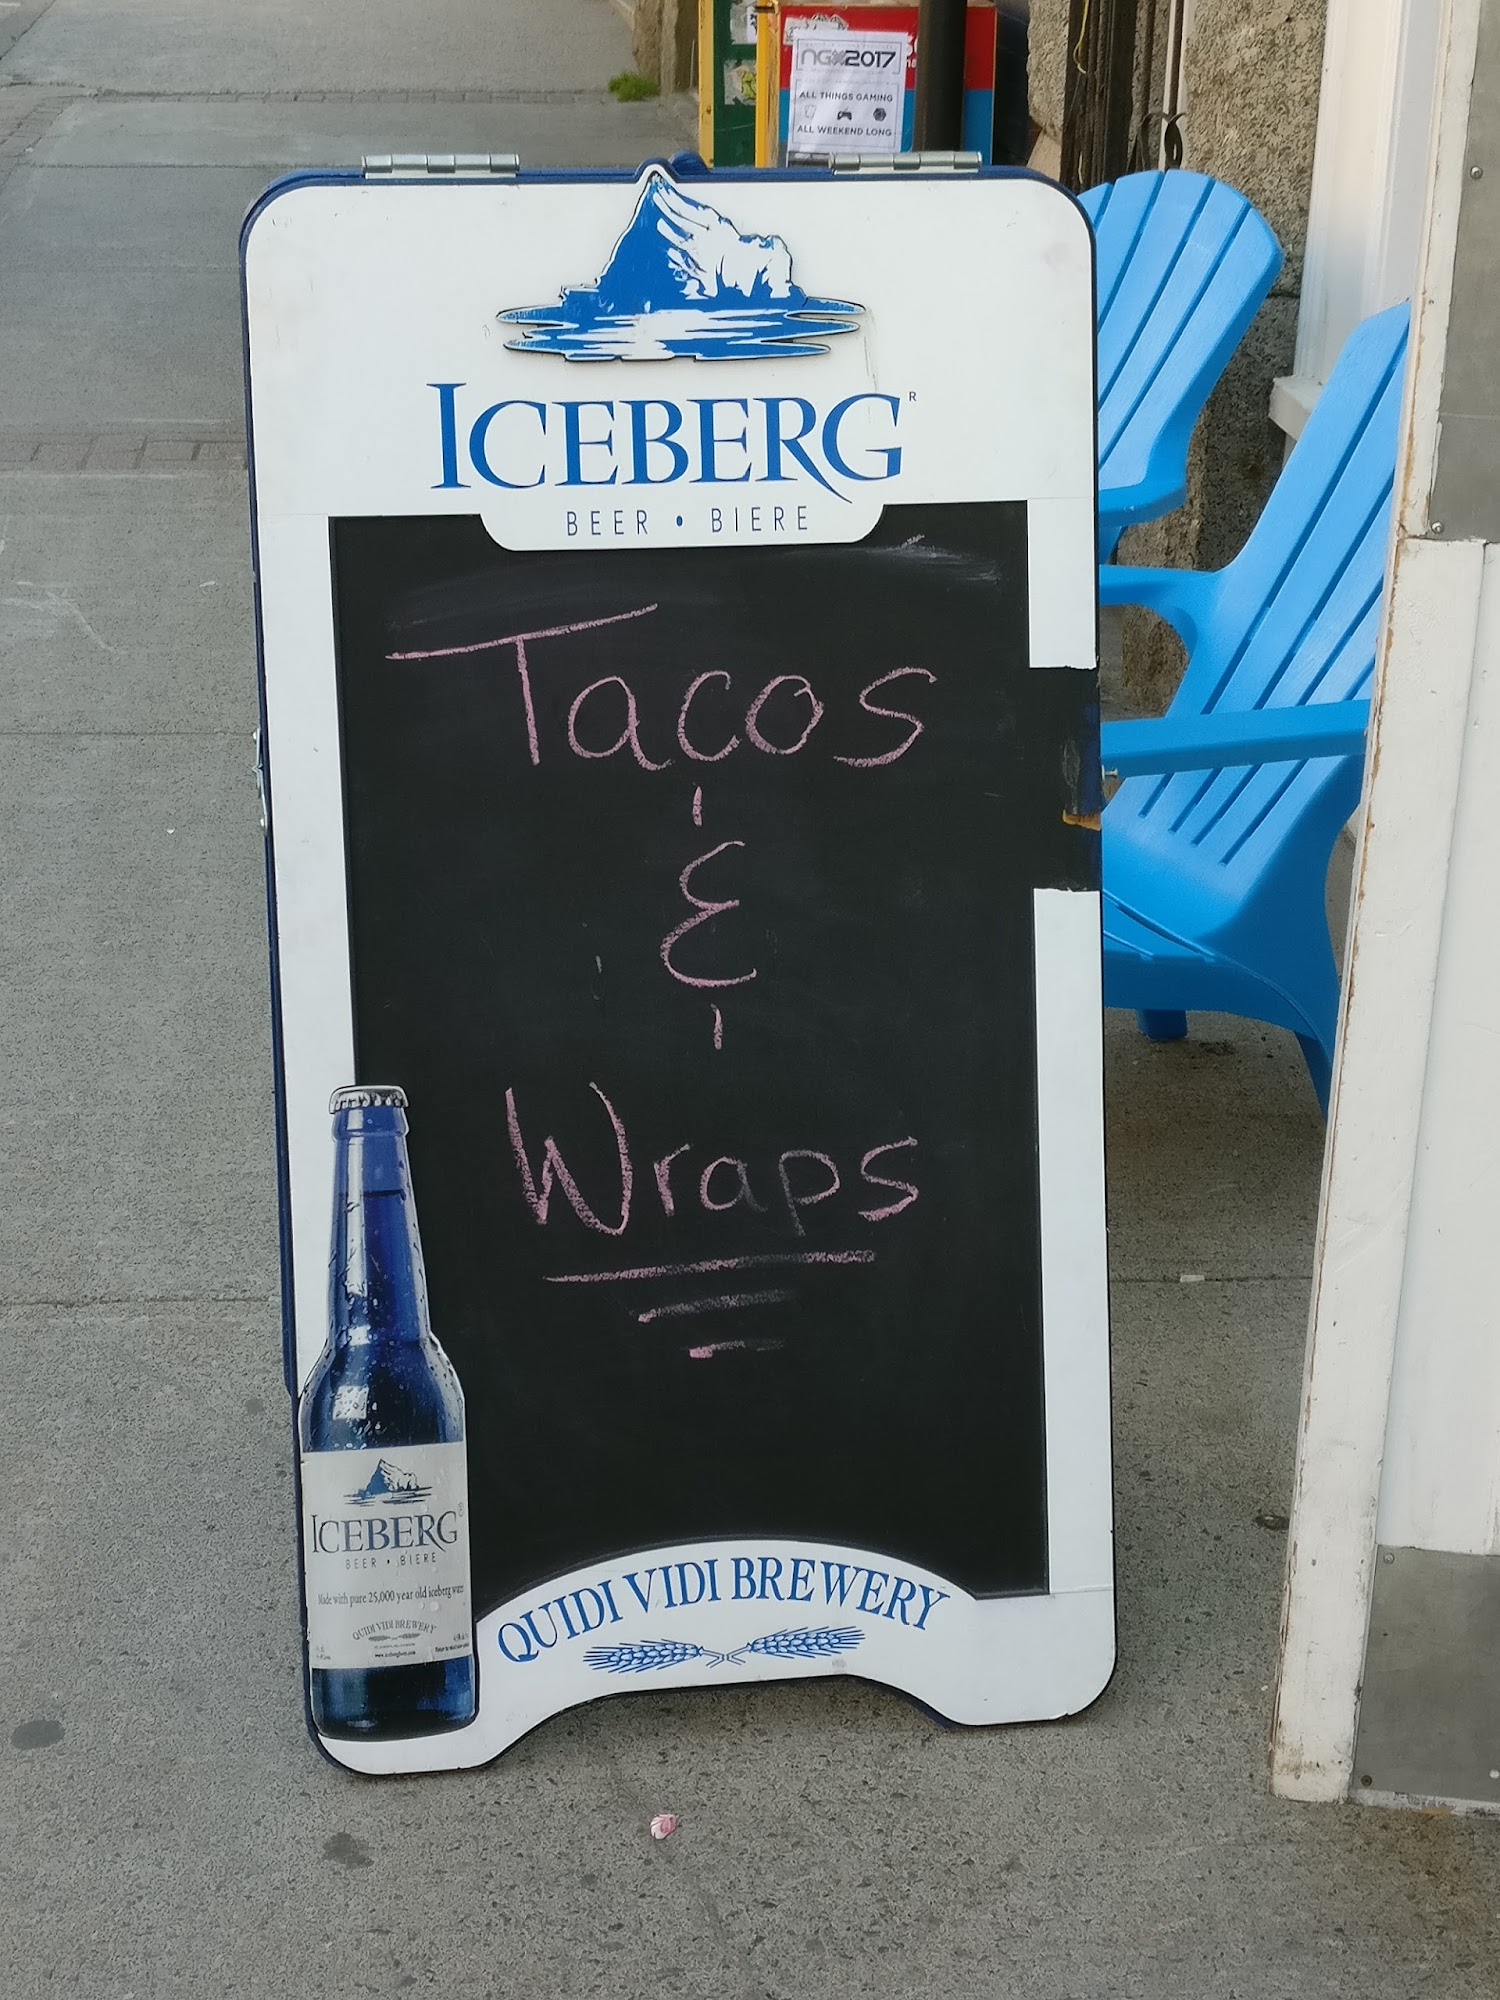 NGX2017
ALL THINGS GAMING
ALL WEEKEND LONG
ICEBERG
BEER • BIERE
Tacos
&
Wraps
ICEBERG
BEER • BIERE
Made with pure 25,000 year old iceberg water
QUIDI VIDI BREWERY
QUIDI VIDI BREWERY